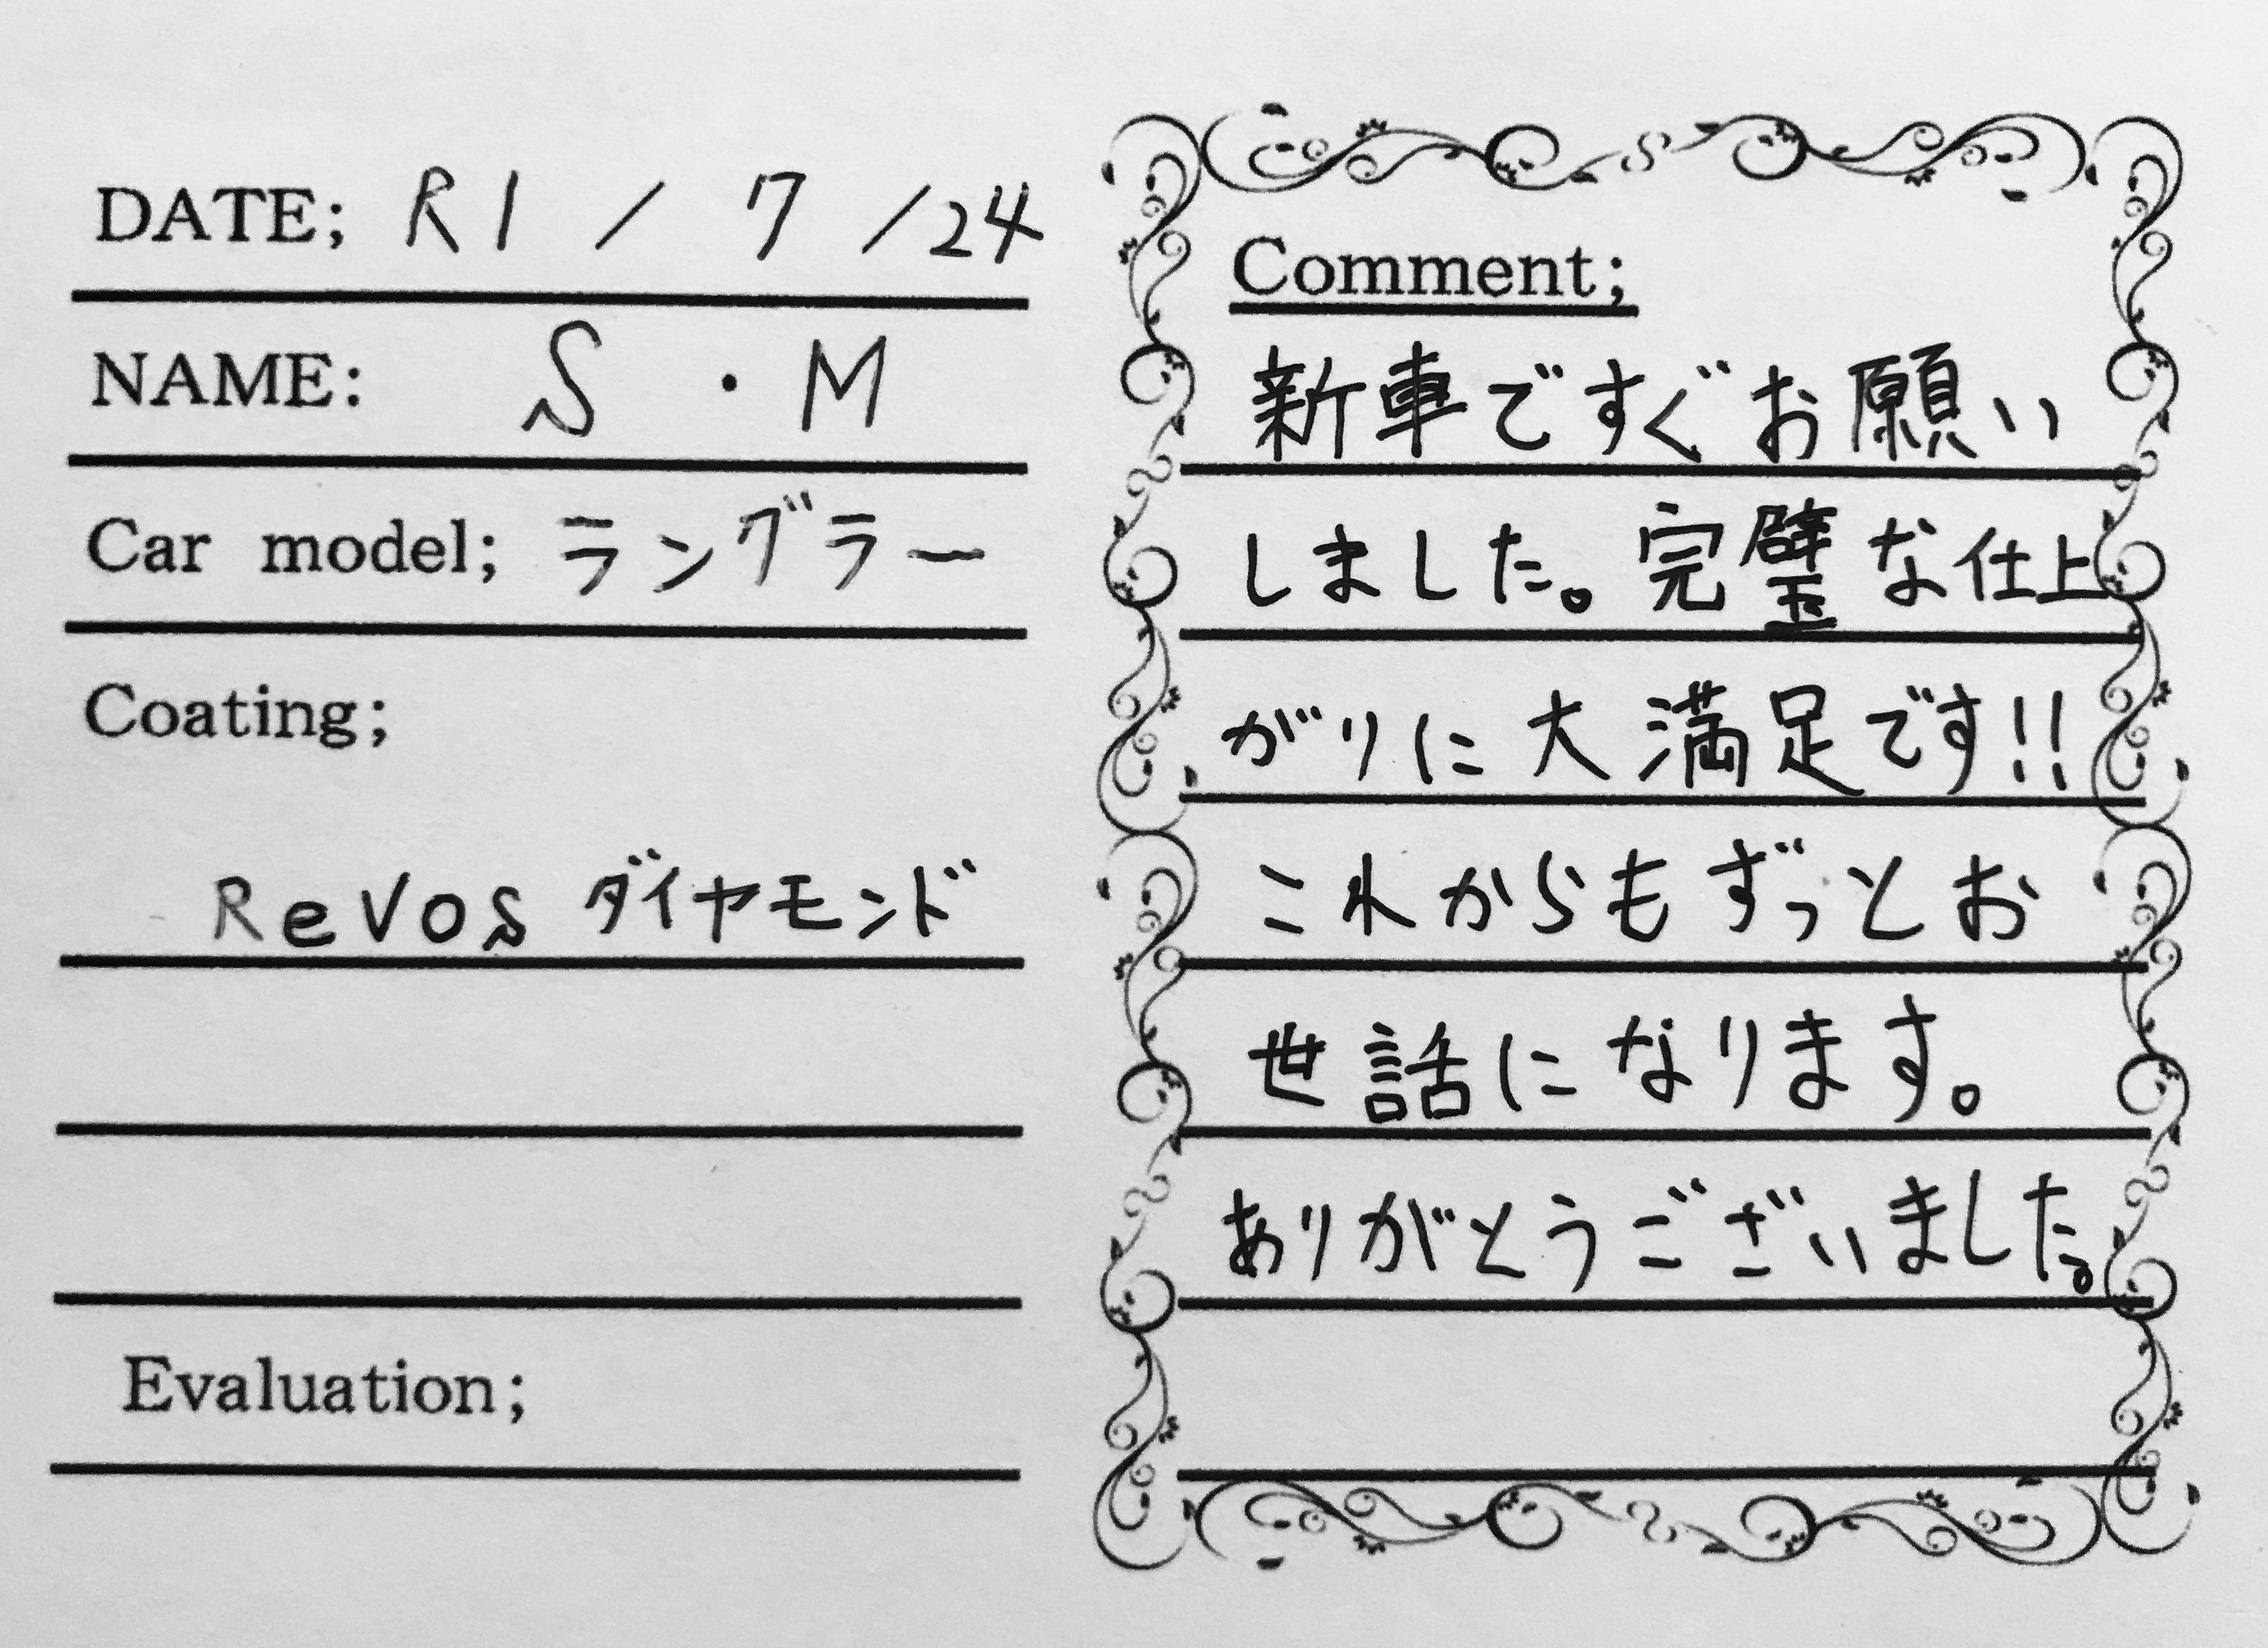 DATE; R1 / 7 /24
NAME: S ・ M
Car model; ラングラー
Coating;
ReVos ダイヤモンド
Evaluation;
Comment;
新車ですぐお願い
しました。完璧な仕上
がりに大満足です!!
これからもずっとお
世話になります。
ありがとうございました。